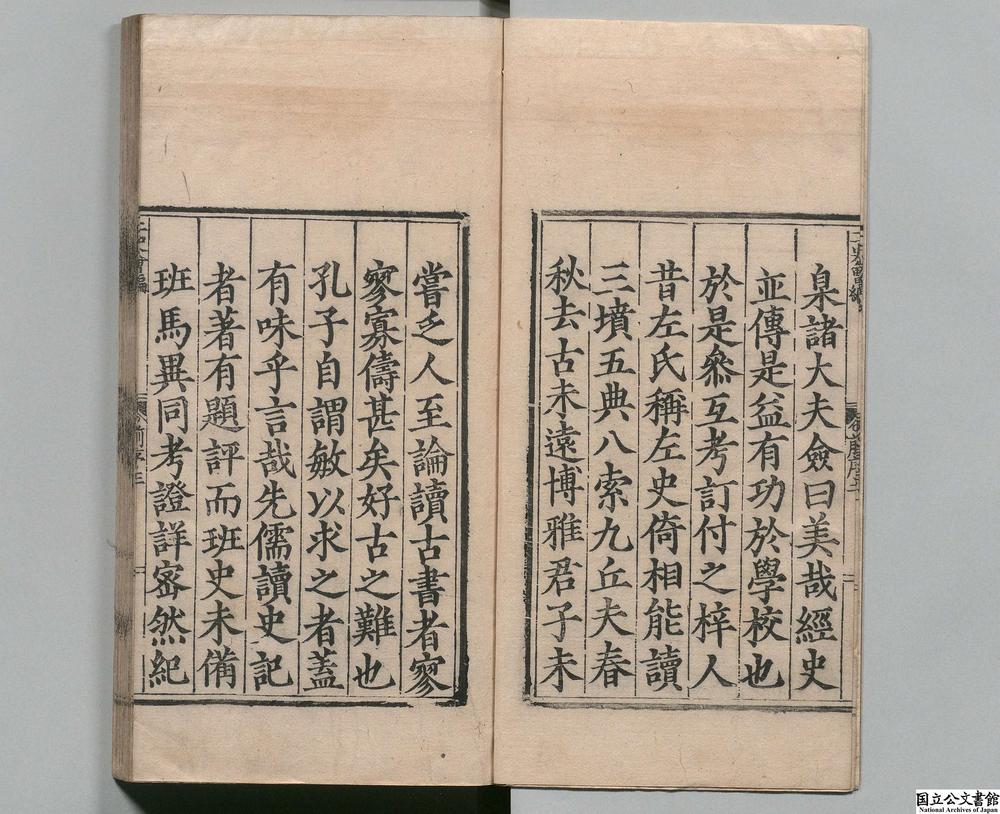 臬諸大夫僉曰美哉經史
並傳是益有功於學校也
於是叅互考訂付之梓人
昔左氏稱左史倚相能讀
三墳五典八索九丘夫春
秋去古未遠博雅君子未
嘗乏人至論讀古書者寥
寥寡儔甚矣好古之難也
孔子自謂敏以求之者蓋
有味乎言哉先儒讀史記
者著有題評而班史未備
班馬異同考證詳宻然紀
国立公文書館
National Archives of Japan